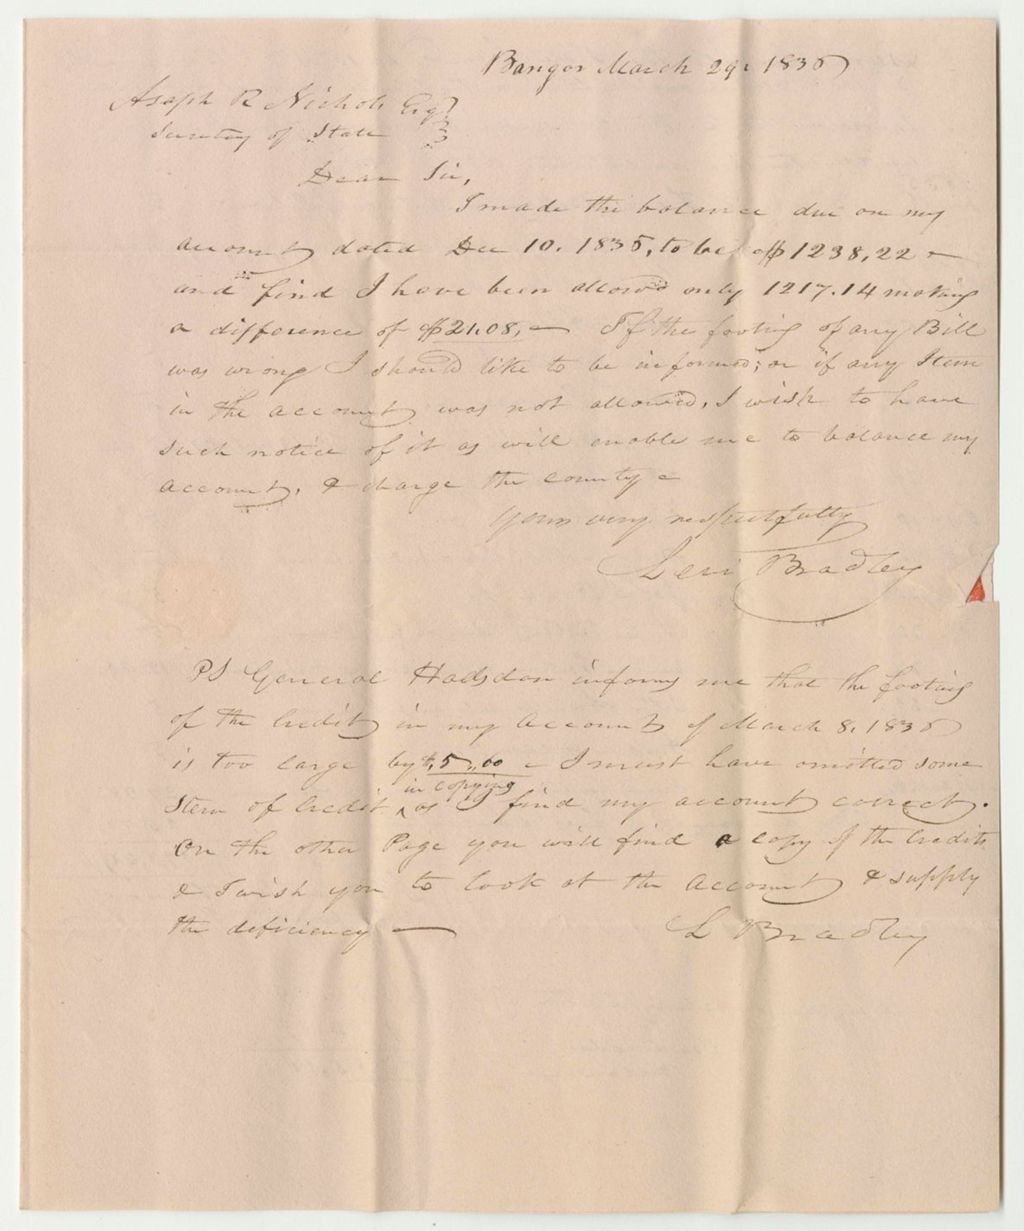 Bangor March 29. 1836
Asaph R Nichols Esqr
Secretary of State
Dear Sir,
I made the balance due on my
account dated Dec 10. 1835, to be $1238,22 —
and find I have been allowd only 1217.14 making
a difference of $21.08, — If the footing of any Bill
was wrong I should like to be informed; or if any Item
in the account was not allowed, I wish to have
such notice of it as will enable me to balance my
account, & charge the county —
Yours very respectfully
Levi Bradley
PS General Hodsdon informs me that the footing
of the Credit in my account of March 8, 1836
is too large by $,5,,60 — I must have omitted some
Item of Credit in copying as I find my account correct.
On the other Page you will find a copy of the Credits
& I wish you to look at the account & supply
the deficiency —
L Bradley